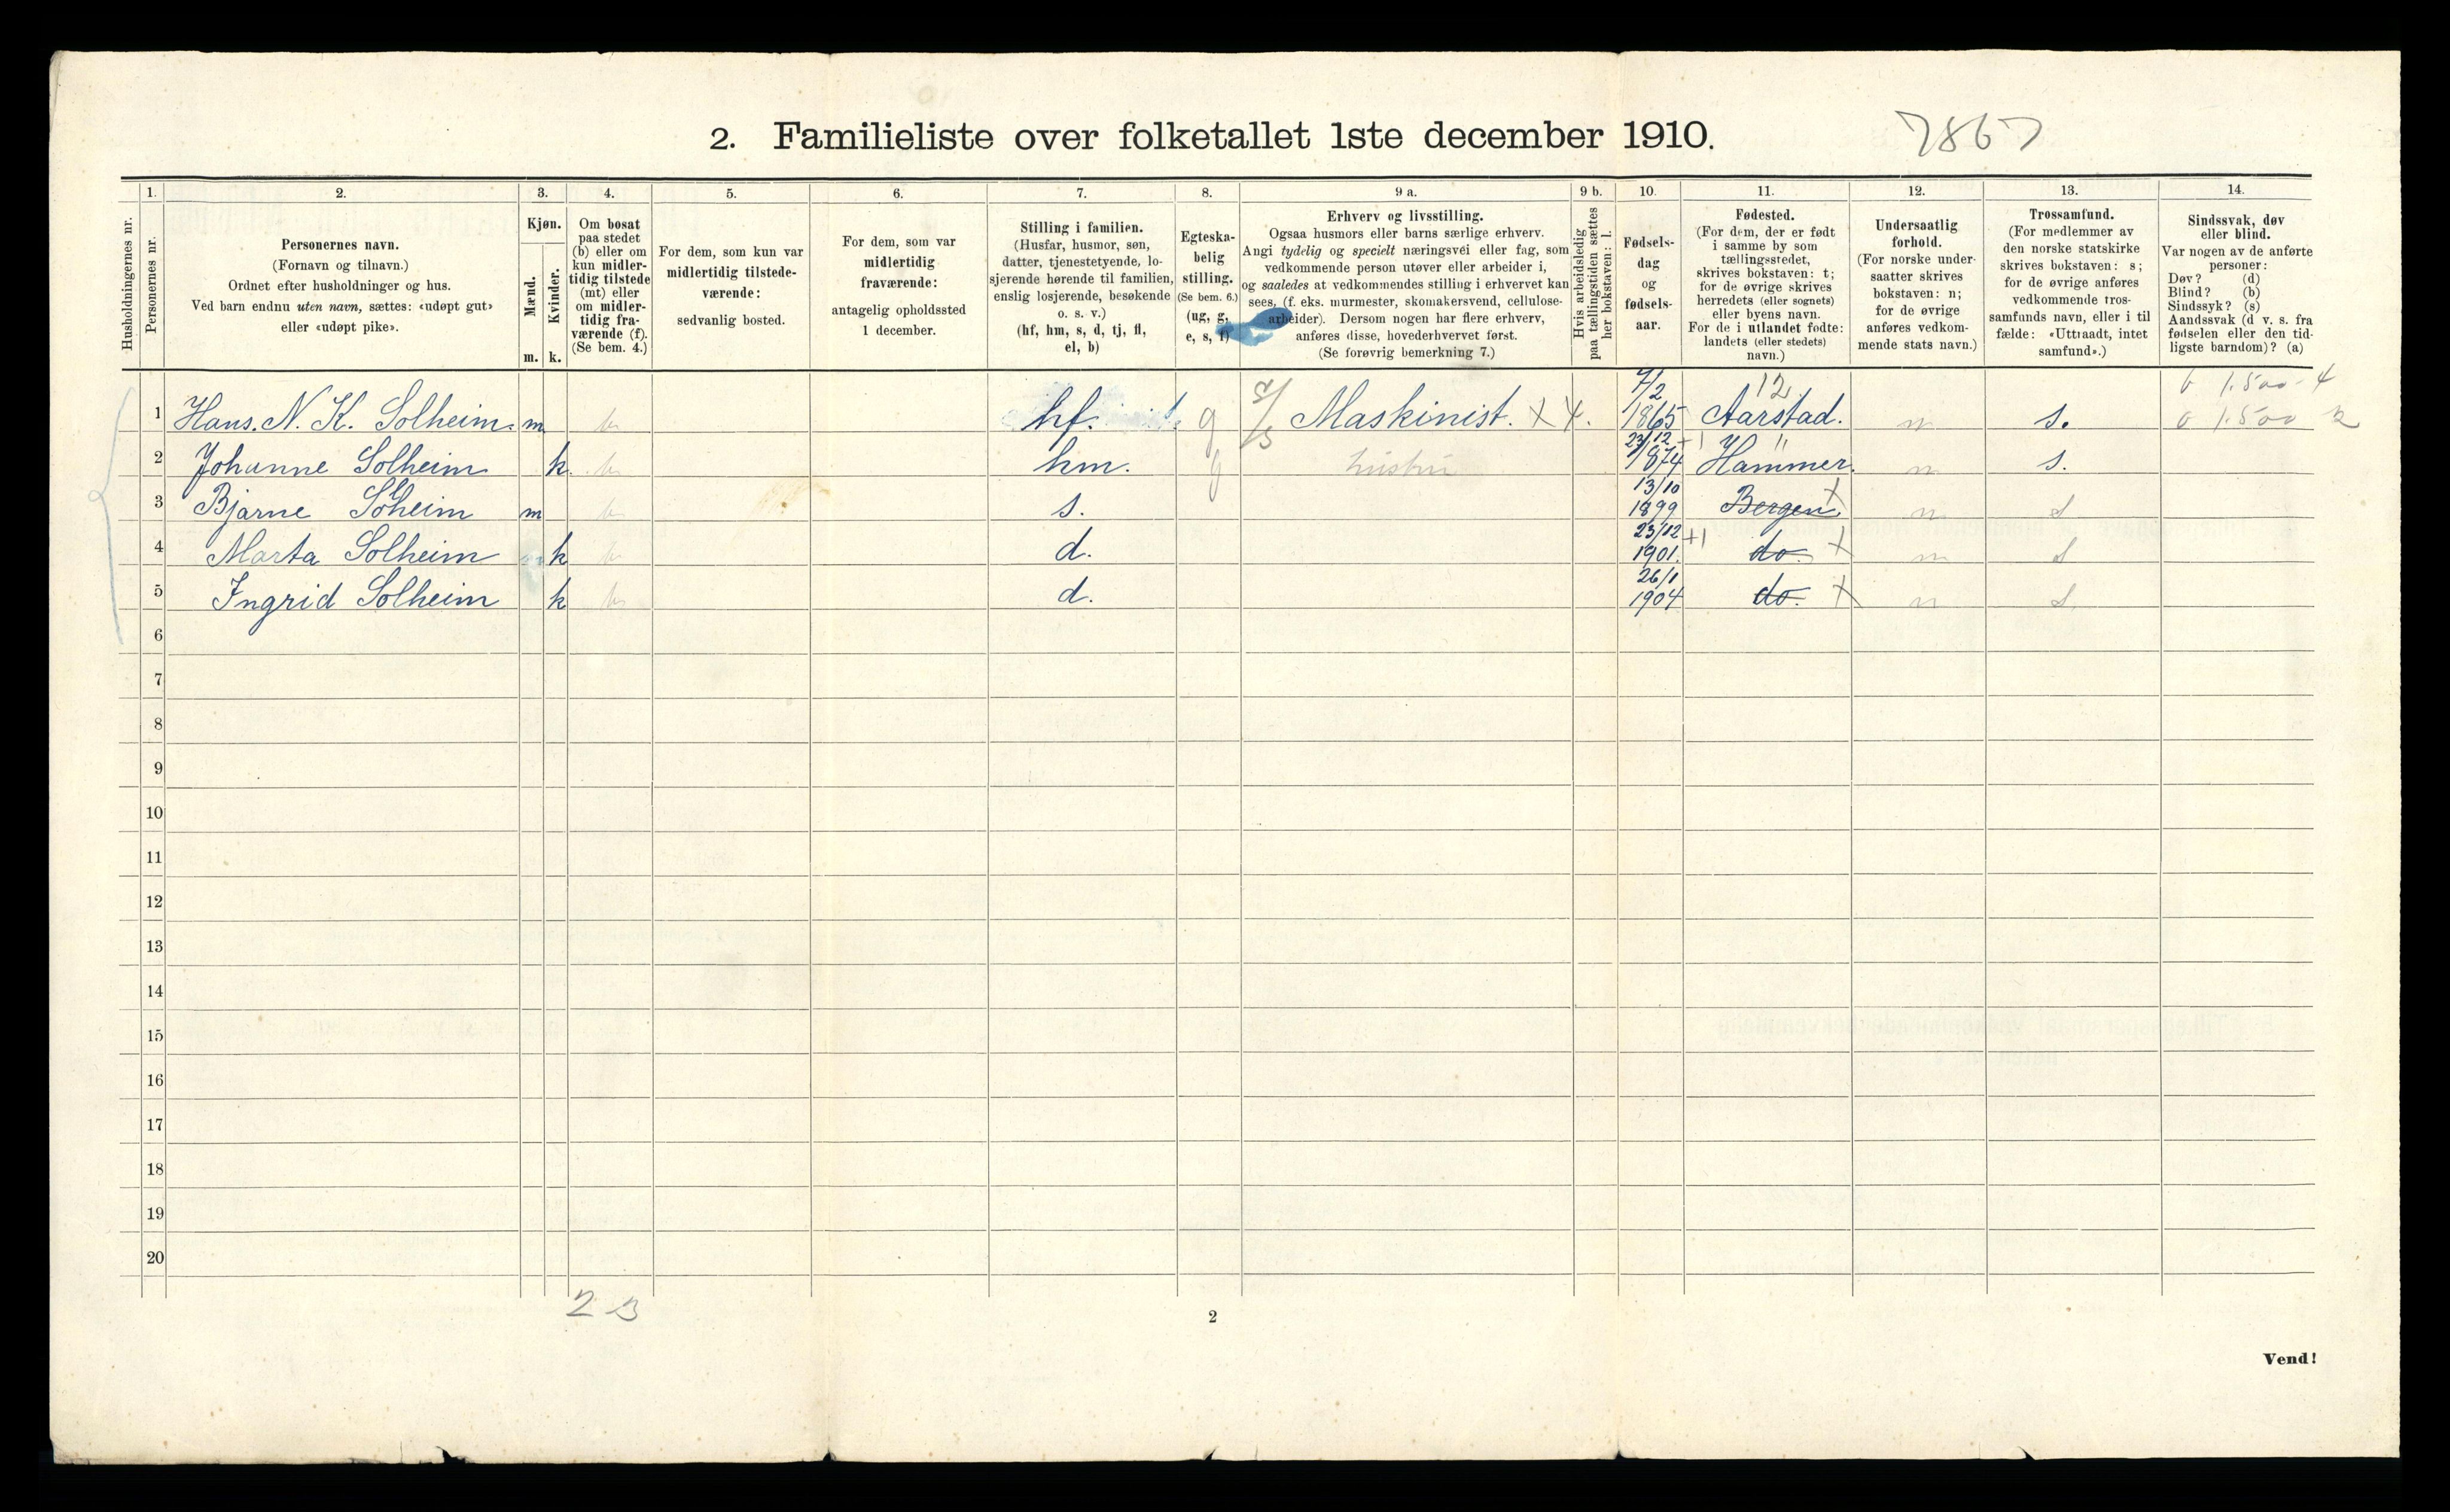 2. Familieliste over folketallet 1ste december 1910. 7867
1. 2. 3. 4. 5. 6. 7. 8. 9 a. 9 b. 10. 11. 12. 13. 14.
Husholdningernes nr.
Personernes nr.
Personernes navn.
(Fornavn og tilnavn.)
Ordnet efter husholdninger og hus.
Ved barn endnu uten navn, sættes: «udøpt gut»
eller «udøpt pike».
Kjøn.
Mænd.
Kvinder.
m. k.
Om bosat
paa stedet
(b) eller om
kun midler-
tidig tilstede
(mt) eller
om midler-
tidig fra-
værende (f).
(Se bem. 4.)
For dem, som kun var
midlertidig tilstede-
værende:
sedvanlig bosted.
For dem, som var
midlertidig
fraværende:
antagelig opholdssted
1 december.
Stilling i familien.
(Husfar, husmor, søn,
datter, tjenestetyende, lo-
sjerende hørende til familien,
enslig losjerende, besøkende
o. s. v.)
(hf, hm, s, d, tj, fl,
el, b)
Egteska-
belig
stilling.
(Se bem. 6.)
(ug, g,
e, s, f)
Erhverv og livsstilling.
Ogsaa husmors eller barns særlige erhverv.
Angi tydelig og specielt næringsvei eller fag, som
vedkommende person utøver eller arbeider i,
og saaledes at vedkommendes stilling i erhvervet kan
sees, (f. eks. murmester, skomakersvend, cellulose-
arbeider). Dersom nogen har flere erhverv,
anføres disse, hovederhvervet først.
(Se forøvrig bemerkning 7.)
Hvis arbeidsledig
paa tællingstiden sættes
her bokstaven: l.
Fødsels-
dag
og
fødsels-
aar.
Fødested.
(For dem, der er født
i samme by som
tællingsstedet,
skrives bokstaven: t;
for de øvrige skrives
herredets (eller sognets)
eller byens navn.
For de i utlandet fødte:
landets (eller stedets)
navn.)
Undersaatlig
forhold.
(For norske under-
saatter skrives
bokstaven: n;
for de øvrige
anføres vedkom-
mende stats navn.)
Trossamfund.
(For medlemmer av
den norske statskirke
skrives bokstaven: s;
for de øvrige anføres
vedkommende tros-
samfunds navn, eller i til
fælde: «Uttraadt, intet
samfund».)
Sindssvak, døv
eller blind.
Var nogen av de anførte
personer:
Døv? (d)
Blind? (b)
Sindssyk? (s)
Aandssvak (d v. s. fra
fødselen eller den tid-
ligste barndom)? (a)
7/2 12 1.500 - 4
1 Hans. N. K. Solheim. m b hf. g Maskinist. X 4. 1865 Aarstad. n s. 1.500
23/12 +1 "
2 Johanne Solheim k. b hm. g hustru 1874 Hammer. n s.
13/10
3 Bjarne Solheim m b s. 1899 Bergen. X n s
23/12 +1
4 Marta Solheim k b d. 1901. do. X n s
26/1
5 Ingrid Solheim k b d. 1904 do. X n s.
6
7
8
9
10
11
12
13
14
15
16
17
18
19
20
2 3
2
Vend!